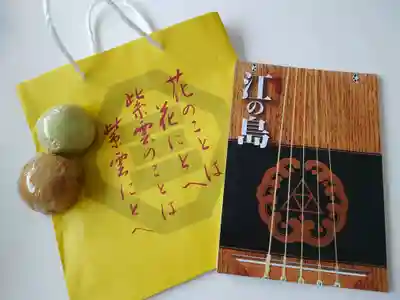 花のことは
花にとへ
紫雲のことは
紫雲にとへ
江の島